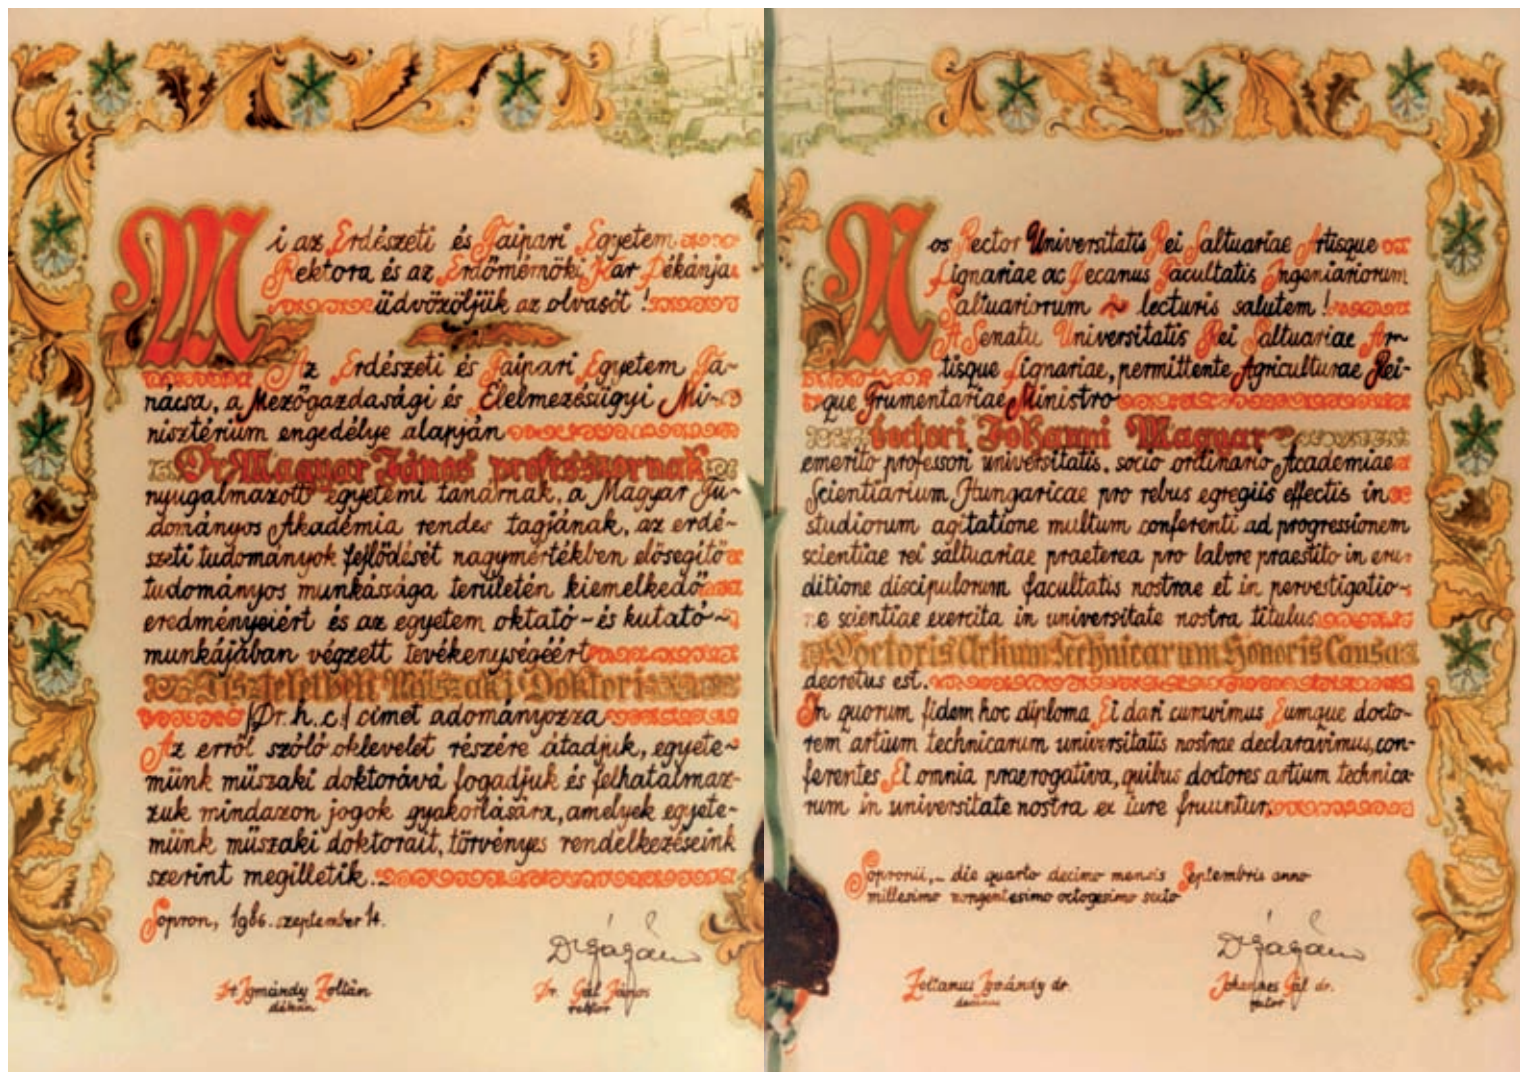 Mi az Erdészeti és Faipari Egyetem
Rektora és az Erdőmérnöki Kar Dékánja
üdvözöljük az olvasót!
Az Erdészeti és Faipari Egyetem Ta-
nácsa, a Mezőgazdasági és Élelmezésügyi Mi-
nisztérium engedélye alapján
Dr. Magyar János professzornak
nyugalmazott egyetemi tanárnak, a Magyar Tu-
dományos Akadémia rendes tagjának, az erdé-
szeti tudományok fejlődését nagymértékben elősegítő
tudományos munkássága területén kiemelkedő
eredményeiért és az egyetem oktató- és kutató-
munkájában végzett tevékenységéért
Tiszteletbeli Műszaki Doktori
/Dr. h. c./ címet adományozza
Az erről szóló oklevelet részére átadjuk, egyete-
münk műszaki doktorává fogadjuk és felhatalmaz-
zuk mindazon jogok gyakorlására, amelyek egyete-
münk műszaki doktorait, törvényes rendelkezéseink
szerint megilletik.
Sopron, 1986. szeptember 14.
Dr. Igmándy Zoltán
dékán
Dr. Gál János
rektor
Nos Rector Universitatis Rei Saltuariae Artisque
Lignariae ac Decanus Facultatis Ingeniariorum
Saltuariorum lecturis salutem!
A Senatu Universitatis Rei Saltuariae Ar-
tisque Lignariae, permittente Agriculturae Rei-
que Frumentariae Ministro
Doctori Johanni Magyar
emerito professori universitatis, socio ordinario Academiae
Scientiarium Hungaricae pro rebus egregiis effectis in
studiorum agitatione multum conferenti ad progressionem
scientiae rei saltuariae praeterea pro labore praestito in eru-
ditione discipulorum facultatis nostrae et in pervestigatio-
ne scientiae exercita in universitate nostra titulus
Doctoris Artium Technicarum Honoris Causa
decretus est.
In quorum fidem hoc diploma Ei dari curavimus Eumque docto-
rem artium technicarum universitatis nostrae declaravimus, con-
ferentes Ei omnia praerogativa, quibus doctores artium technica-
rum in universitate nostra ex iure fruuntur.
Sopronii, die quarto decimo mensis Septembris anno
millesimo nongentesimo octogesimo sexto
Zoltanus Igmándy dr.
decanus
Johannes Gál dr.
rector